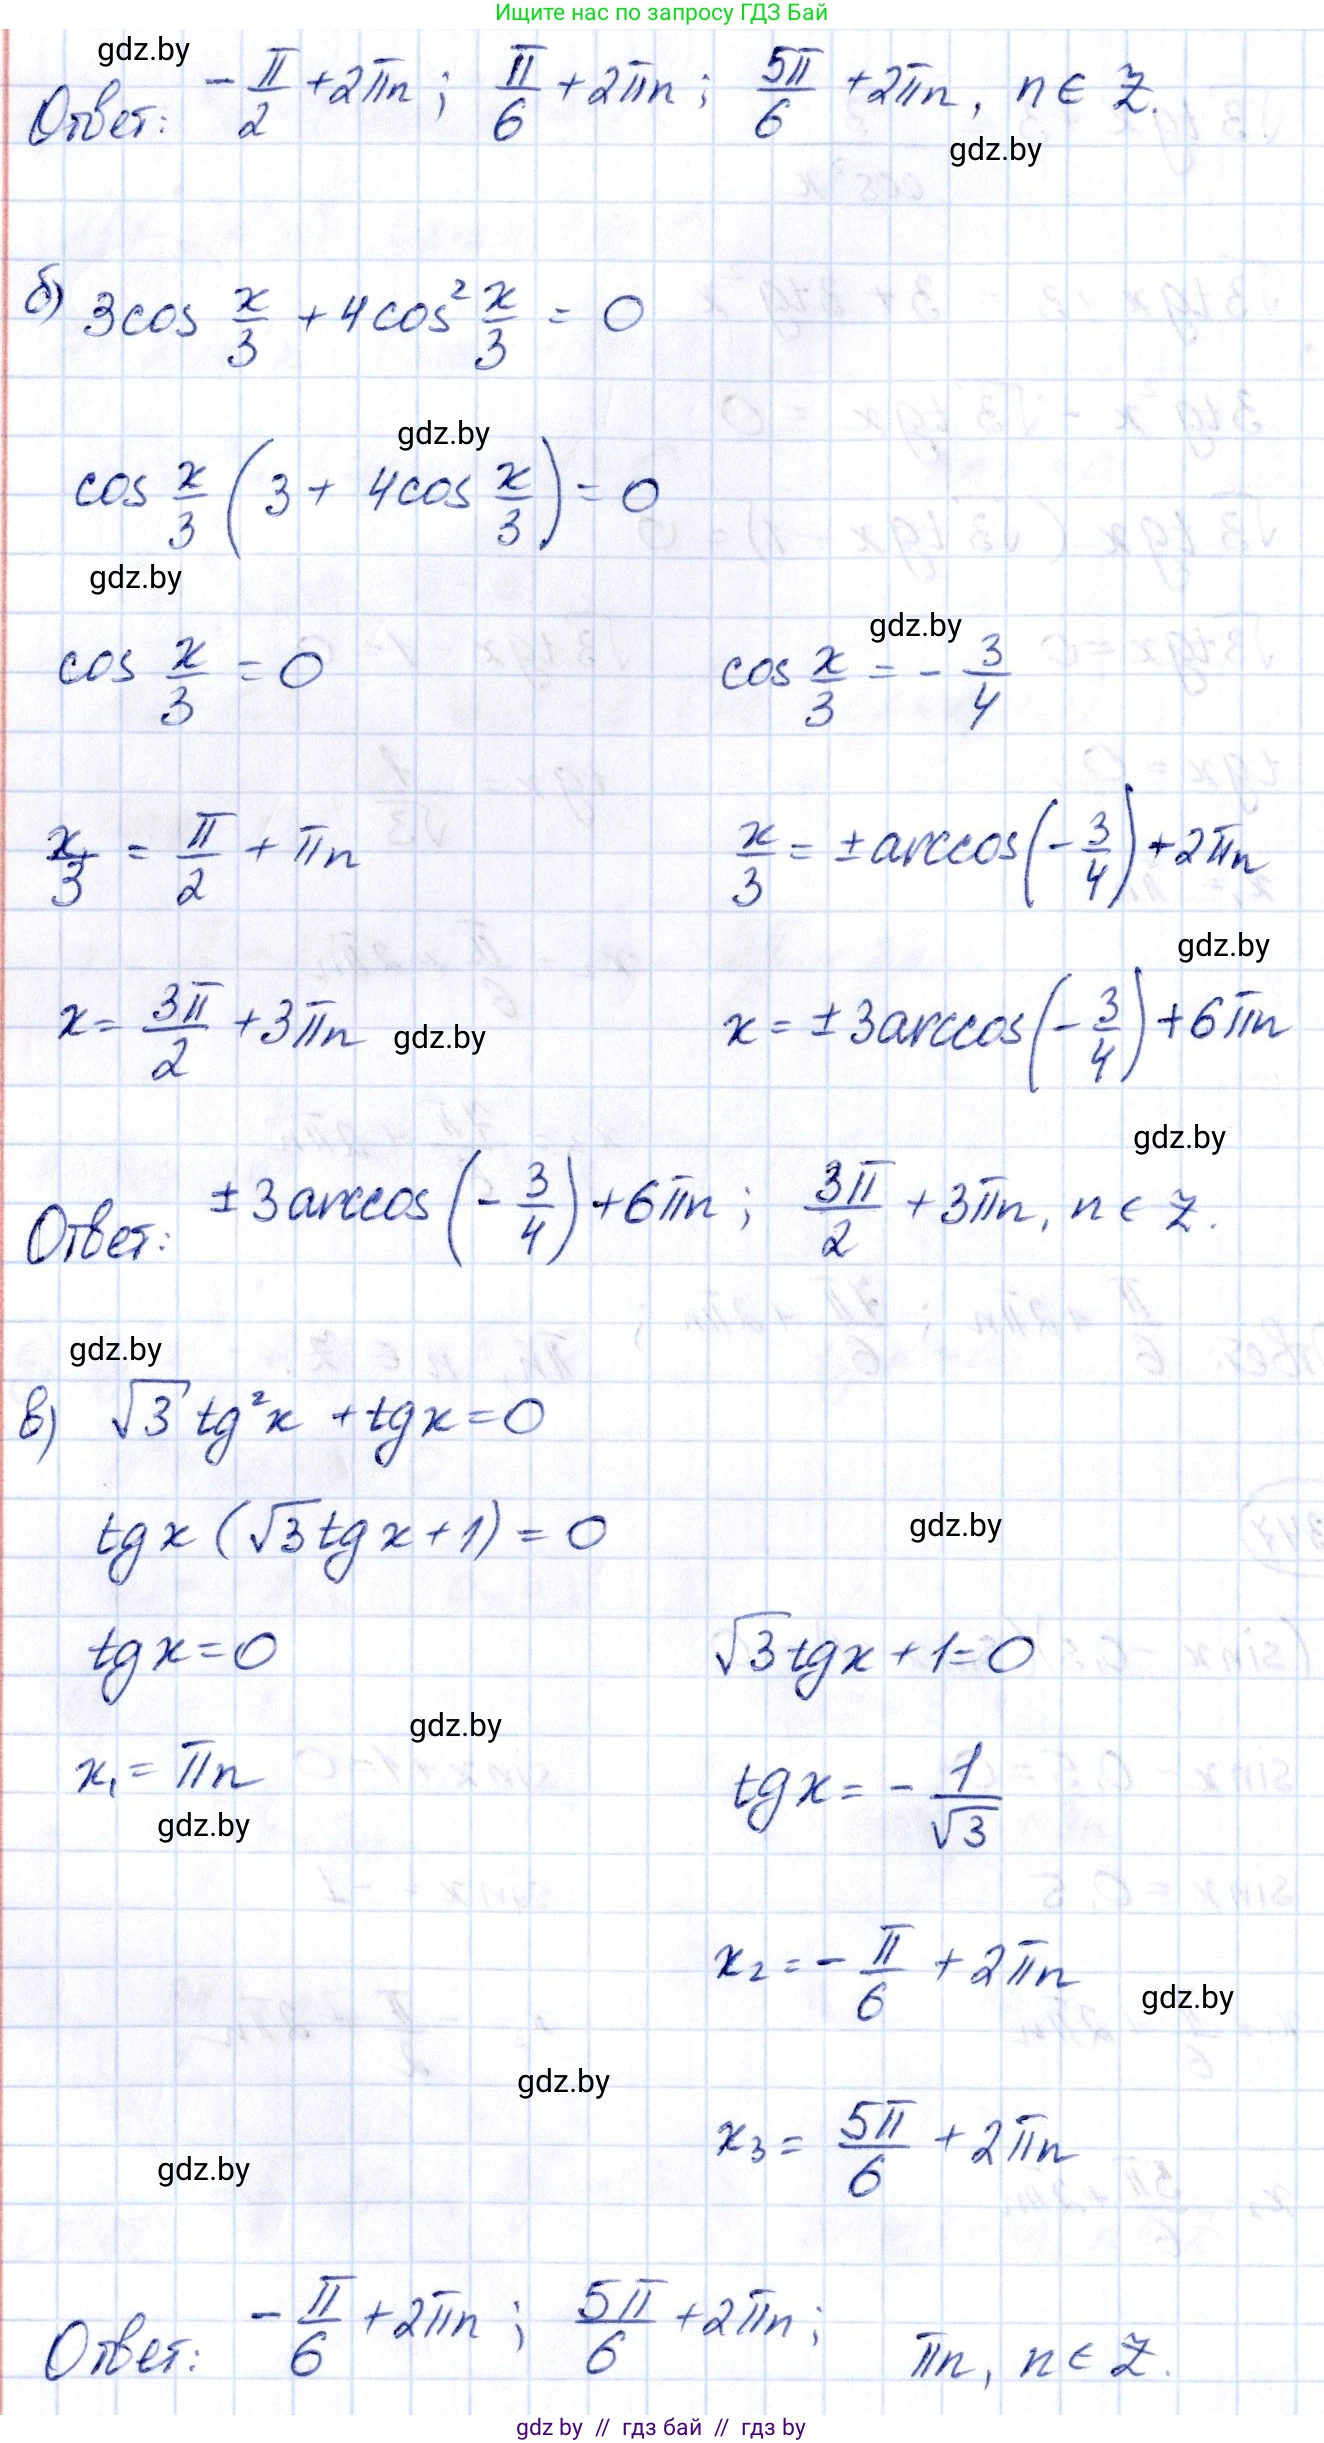 Ищите нас по запросу ГДЗ Бай
gdz.by
Ответ: -π/2 + 2πn; π/6 + 2πn; 5π/6 + 2πn, n ∈ Z.
gdz.by
б) 3cos x/3 + 4cos² x/3 = 0
gdz.by
cos x/3 (3 + 4cos x/3) = 0
gdz.by
gdz.by
cos x/3 = 0 cos x/3 = - 3/4
x/3 = π/2 + πn x/3 = ± arccos(-3/4) + 2πn
gdz.by
x = 3π/2 + 3πn gdz.by x = ± 3arccos(-3/4) + 6πn
gdz.by
Ответ: ± 3arccos(-3/4) + 6πn; 3π/2 + 3πn, n ∈ Z.
gdz.by
в) √3 tg²x + tgx = 0
tgx (√3 tgx + 1) = 0 gdz.by
tgx = 0 √3 tgx + 1 = 0
gdz.by
x₁ = πn tgx = - 1/√3
gdz.by
x₂ = - π/6 + 2πn
gdz.by
gdz.by
x₃ = 5π/6 + 2πn
gdz.by
Ответ: -π/6 + 2πn; 5π/6 + 2πn; πn, n ∈ Z.
gdz by // гдз бай // гдз by